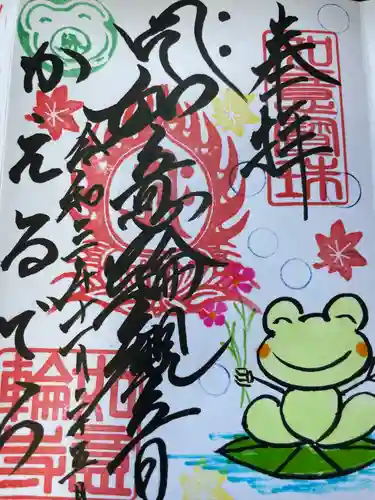 奉拝
如意寶珠
如意輪観音
令和三年十一月二十五日
かえるでら
如意輪寺